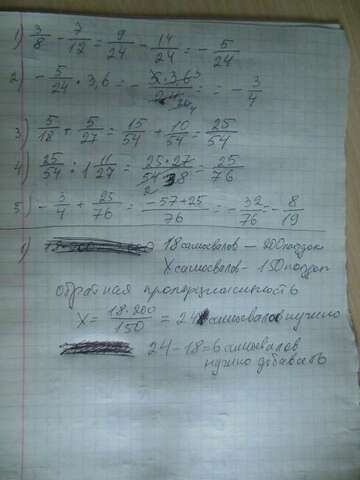 1) 3/8 - 7/12 = 9/24 - 14/24 = - 5/24
2) - 5/24 · 3,6 = - = - 3/4
3) 5/18 + 5/27 = 15/54 + 10/54 = 25/54
4) 25/54 : 1 11/27 = 25·27/54·38 = 25/76
5) - 3/4 + 25/76 = -57+25/76 = - 32/76 = - 8/19
1) 18 самосвалов — 200 поездок
X самосвалов - 150 поездок
обратная пропорциональность
X = 18·200/150 = 24 самосвалов нужно
24 - 18 = 6 самосвалов
нужно добавить